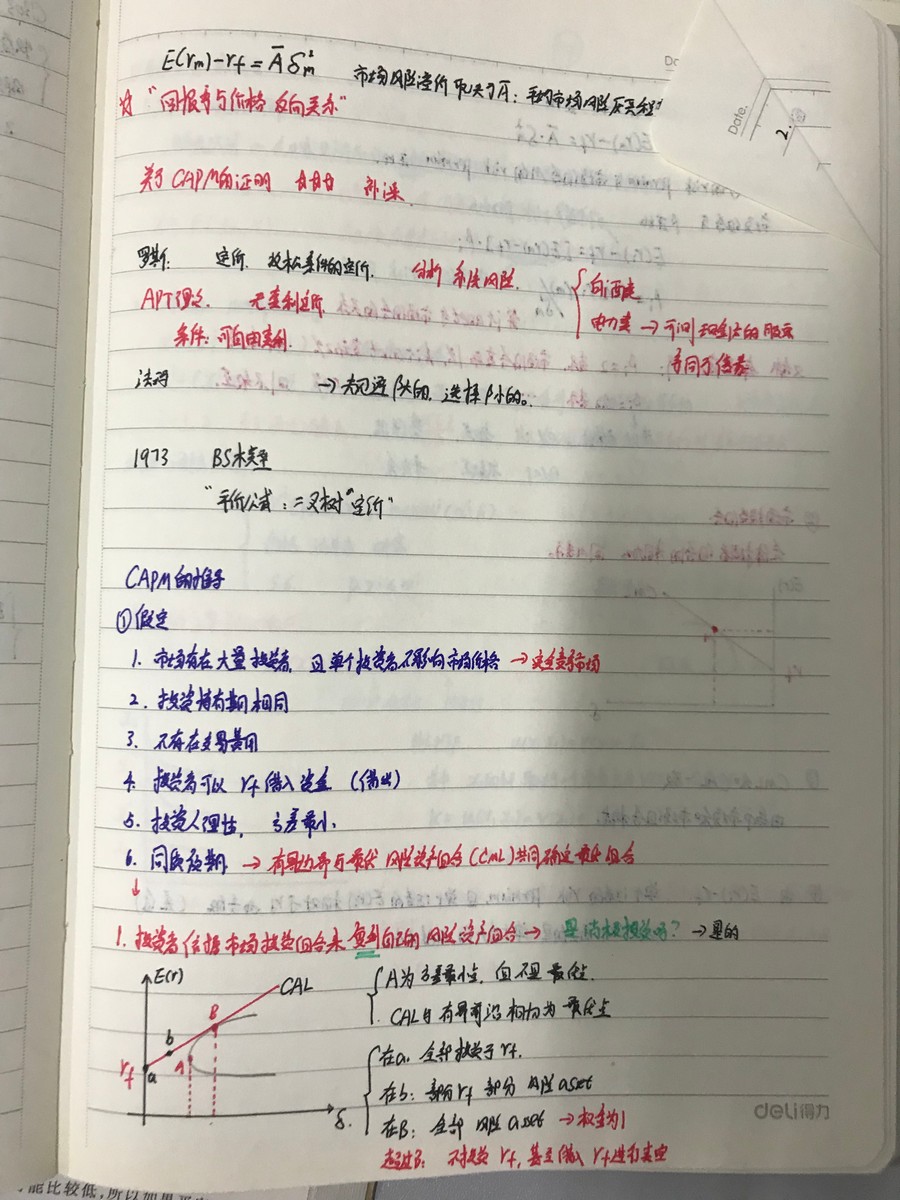 E(rm)-rf = Ā δm² 市场风险溢价取决于Ā：平均市场风险厌恶程度
"回报率与价格反向关系"
关于CAPM的证明 补课
罗斯： 定价，较松条件的定价， 分析 系统风险 白酒类
APT理论 无套利定价 电力类 → 可同
条件：可自由套利 等同于债券
法玛 → β大的，选择β小的。
1973 BS模型
"平价公式：二叉树"定价"
CAPM的推导
①假定
1. 市场存在大量投资者，且单个投资者不影响市场价格 → 完全竞争市场
2. 投资持有期相同
3. 不存在交易费用
4. 投资者可以 rf 借入资金 (借出)
5. 投资人理性， 方差最小.
6. 同质预期 → 有效边界与最优风险资产组合(CML)共同确定最优组合
1. 投资者依据市场投资组合来复制自己的风险资产组合 → 是消极投资吗？ → 是的
E(r) CAL A为方差最小点，但不是最优点.
B CAL与有效前沿相切为最优点
b A
rf a 在a: 全部投资于rf.
在b: 部分rf 部分风险asset
δ. 在B: 全部风险asset → 权重为1
deli得力
超过B: 不投资rf, 甚至借入rf进行卖空
Date.
2.